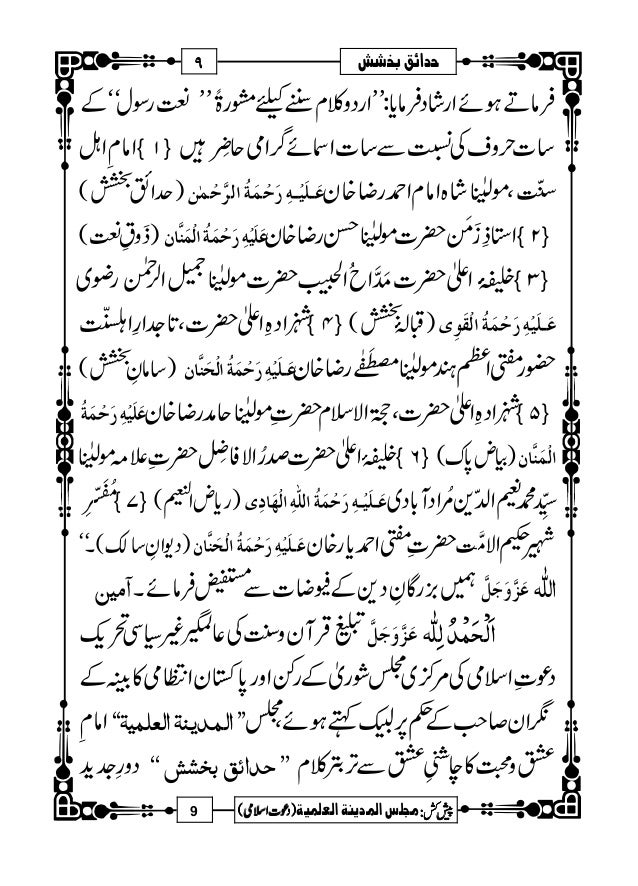 حدائق بخشش
۹
فرماتے ہوئے ارشاد فرمایا:’’اردو کلام سننے کیلئے مشورۃً ’’ نعت رسول‘‘ کے
سات حروف کی نسبت سے سات اسمائے گرامی حاضِر ہیں {۱} امامِ اہل
سنّت ،مولیٰنا شاہ امام احمد رضا خان عَلَيْهِ رَحْمَةُ الرَّحْمٰن (حدائقِ بخشش)
{۲} استاذِ زَمَن حضرت مولیٰنا حسن رضا خان عَلَيْهِ رَحْمَةُ الْمَنَّان (ذَوقِ نعت)
{۳} خلیفۂ اعلیٰ حضرت مَدَّاحُ الحبیب حضرت مولیٰنا جمیل الرحمٰن رضوی
عَلَيْهِ رَحْمَةُ الْقَوِى (قبالۂ بخشش) {۴} شہزادہِ اعلیٰ حضرت، تاجدارِ اہلسنّت
حضور مفتی اعظم ہند مولیٰنا مصطَفٰے رضا خان عَلَيْهِ رَحْمَةُ الْحَنَّان (سامانِ بخشش)
{۵} شہزادہِ اعلیٰ حضرت، حجۃ الاسلام حضرتِ مولیٰنا حامد رضا خان عَلَيْهِ رَحْمَةُ
الْمَنَّان (بیاض پاک) {۶} خلیفۂ اعلیٰ حضرت صدرُ الافاضِل حضرتِ علامہ مولیٰنا
سیِّد محمد نعیم الدّین مُراد آبادی عَلَيْهِ رَحْمَةُ اللهِ الْهَادِى (ریاض النعیم) {۷} مُفَسِّرِ
شہیر حکیم الامَّت حضرتِ مفتی احمد یار خان عَلَيْهِ رَحْمَةُ الْحَنَّان (دیوانِ سالک)۔‘‘
الله عَزَّوَجَلَّ ہمیں بزرگانِ دین کے فیوضات سے مستفیض فرمائے۔ آمین
اَلْحَمْدُ لِلّٰه عَزَّوَجَلَّ تبلیغِ قرآن وسنت کی عالمگیر غیر سیاسی تحریک
دعوتِ اسلامی کی مرکزی مجلس شوریٰ کے رکن اور پاکستان انتظامی کابینہ کے
نگران صاحب کے حکم پر لبیک کہتے ہوئے، مجلس”المدينة العلمية“ امامِ
عشق ومحبت کا چاشنیِ عشق سے تربتر کلام ” حدائق بخشش “ دورِ جدید
پیش کش: مجلس المدينة العلمية (دعوت اسلامی)
9